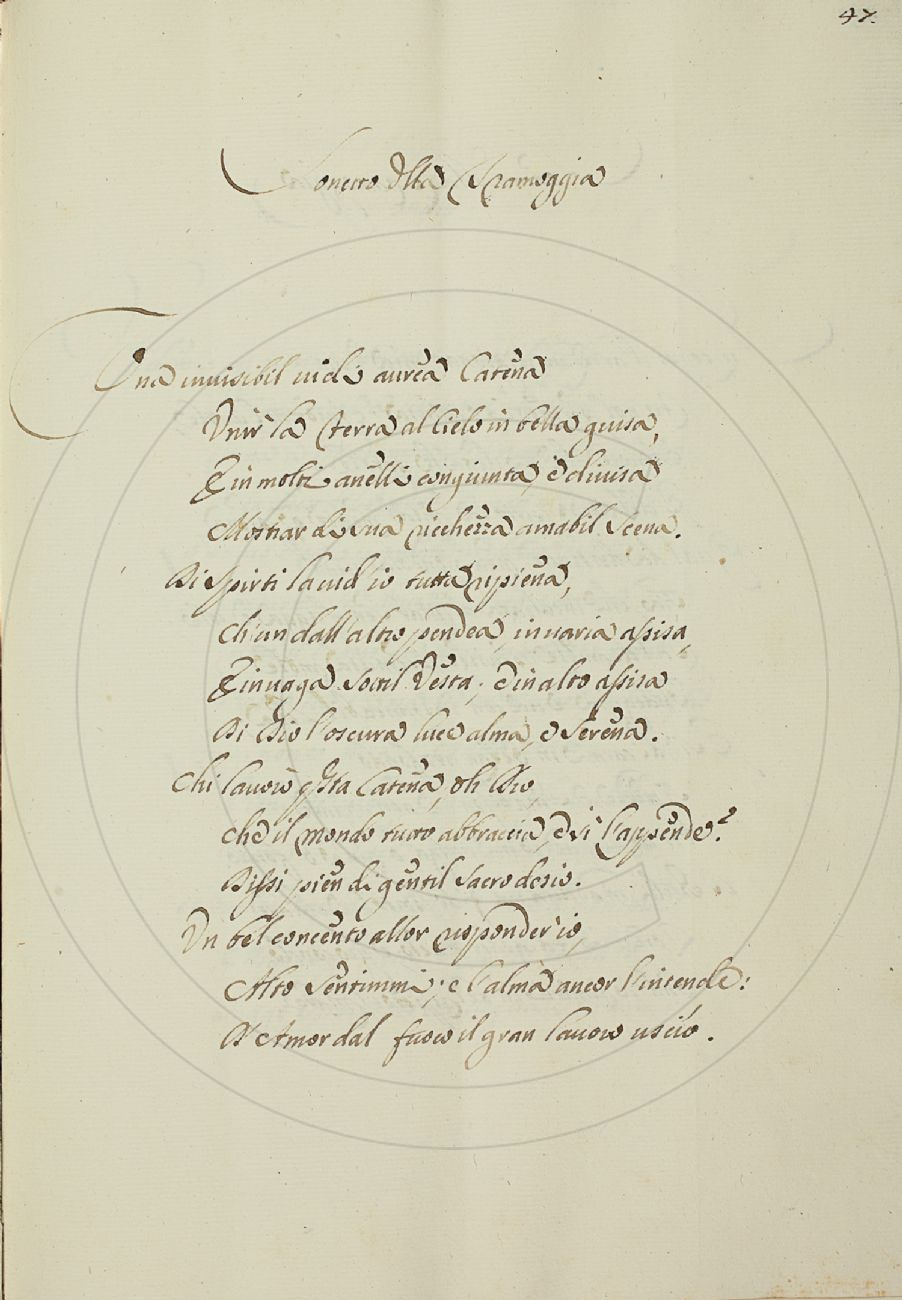 47.
Sonetto dlla Scarampia
Una invisibil vidi aurea Catena
Unir la Terra al Cielo in bella guisa,
E in molti anelli congiunta, e divisa
Mostrar di sua ricchezza amabil Scena.
Di Spirti la vid' io tutta ripiena,
Ch' un dall' altro pendea, in varia assisa,
E in vaga Sottil Vesta, e in alto assisa
Di Dio l' oscura luce alma, e Serena.
Chi lavorò qsta Catena, oh Dio,
Che il mondo tutto abbraccia, e vi l' appende?
Dissi pien di gentil Sacro desio.
Un bel concento allor risponder' io,
Alto Sentimmi; e l' alma ancor l' intende:
D' Amor dal fuoco il gran lavoro uscìo.